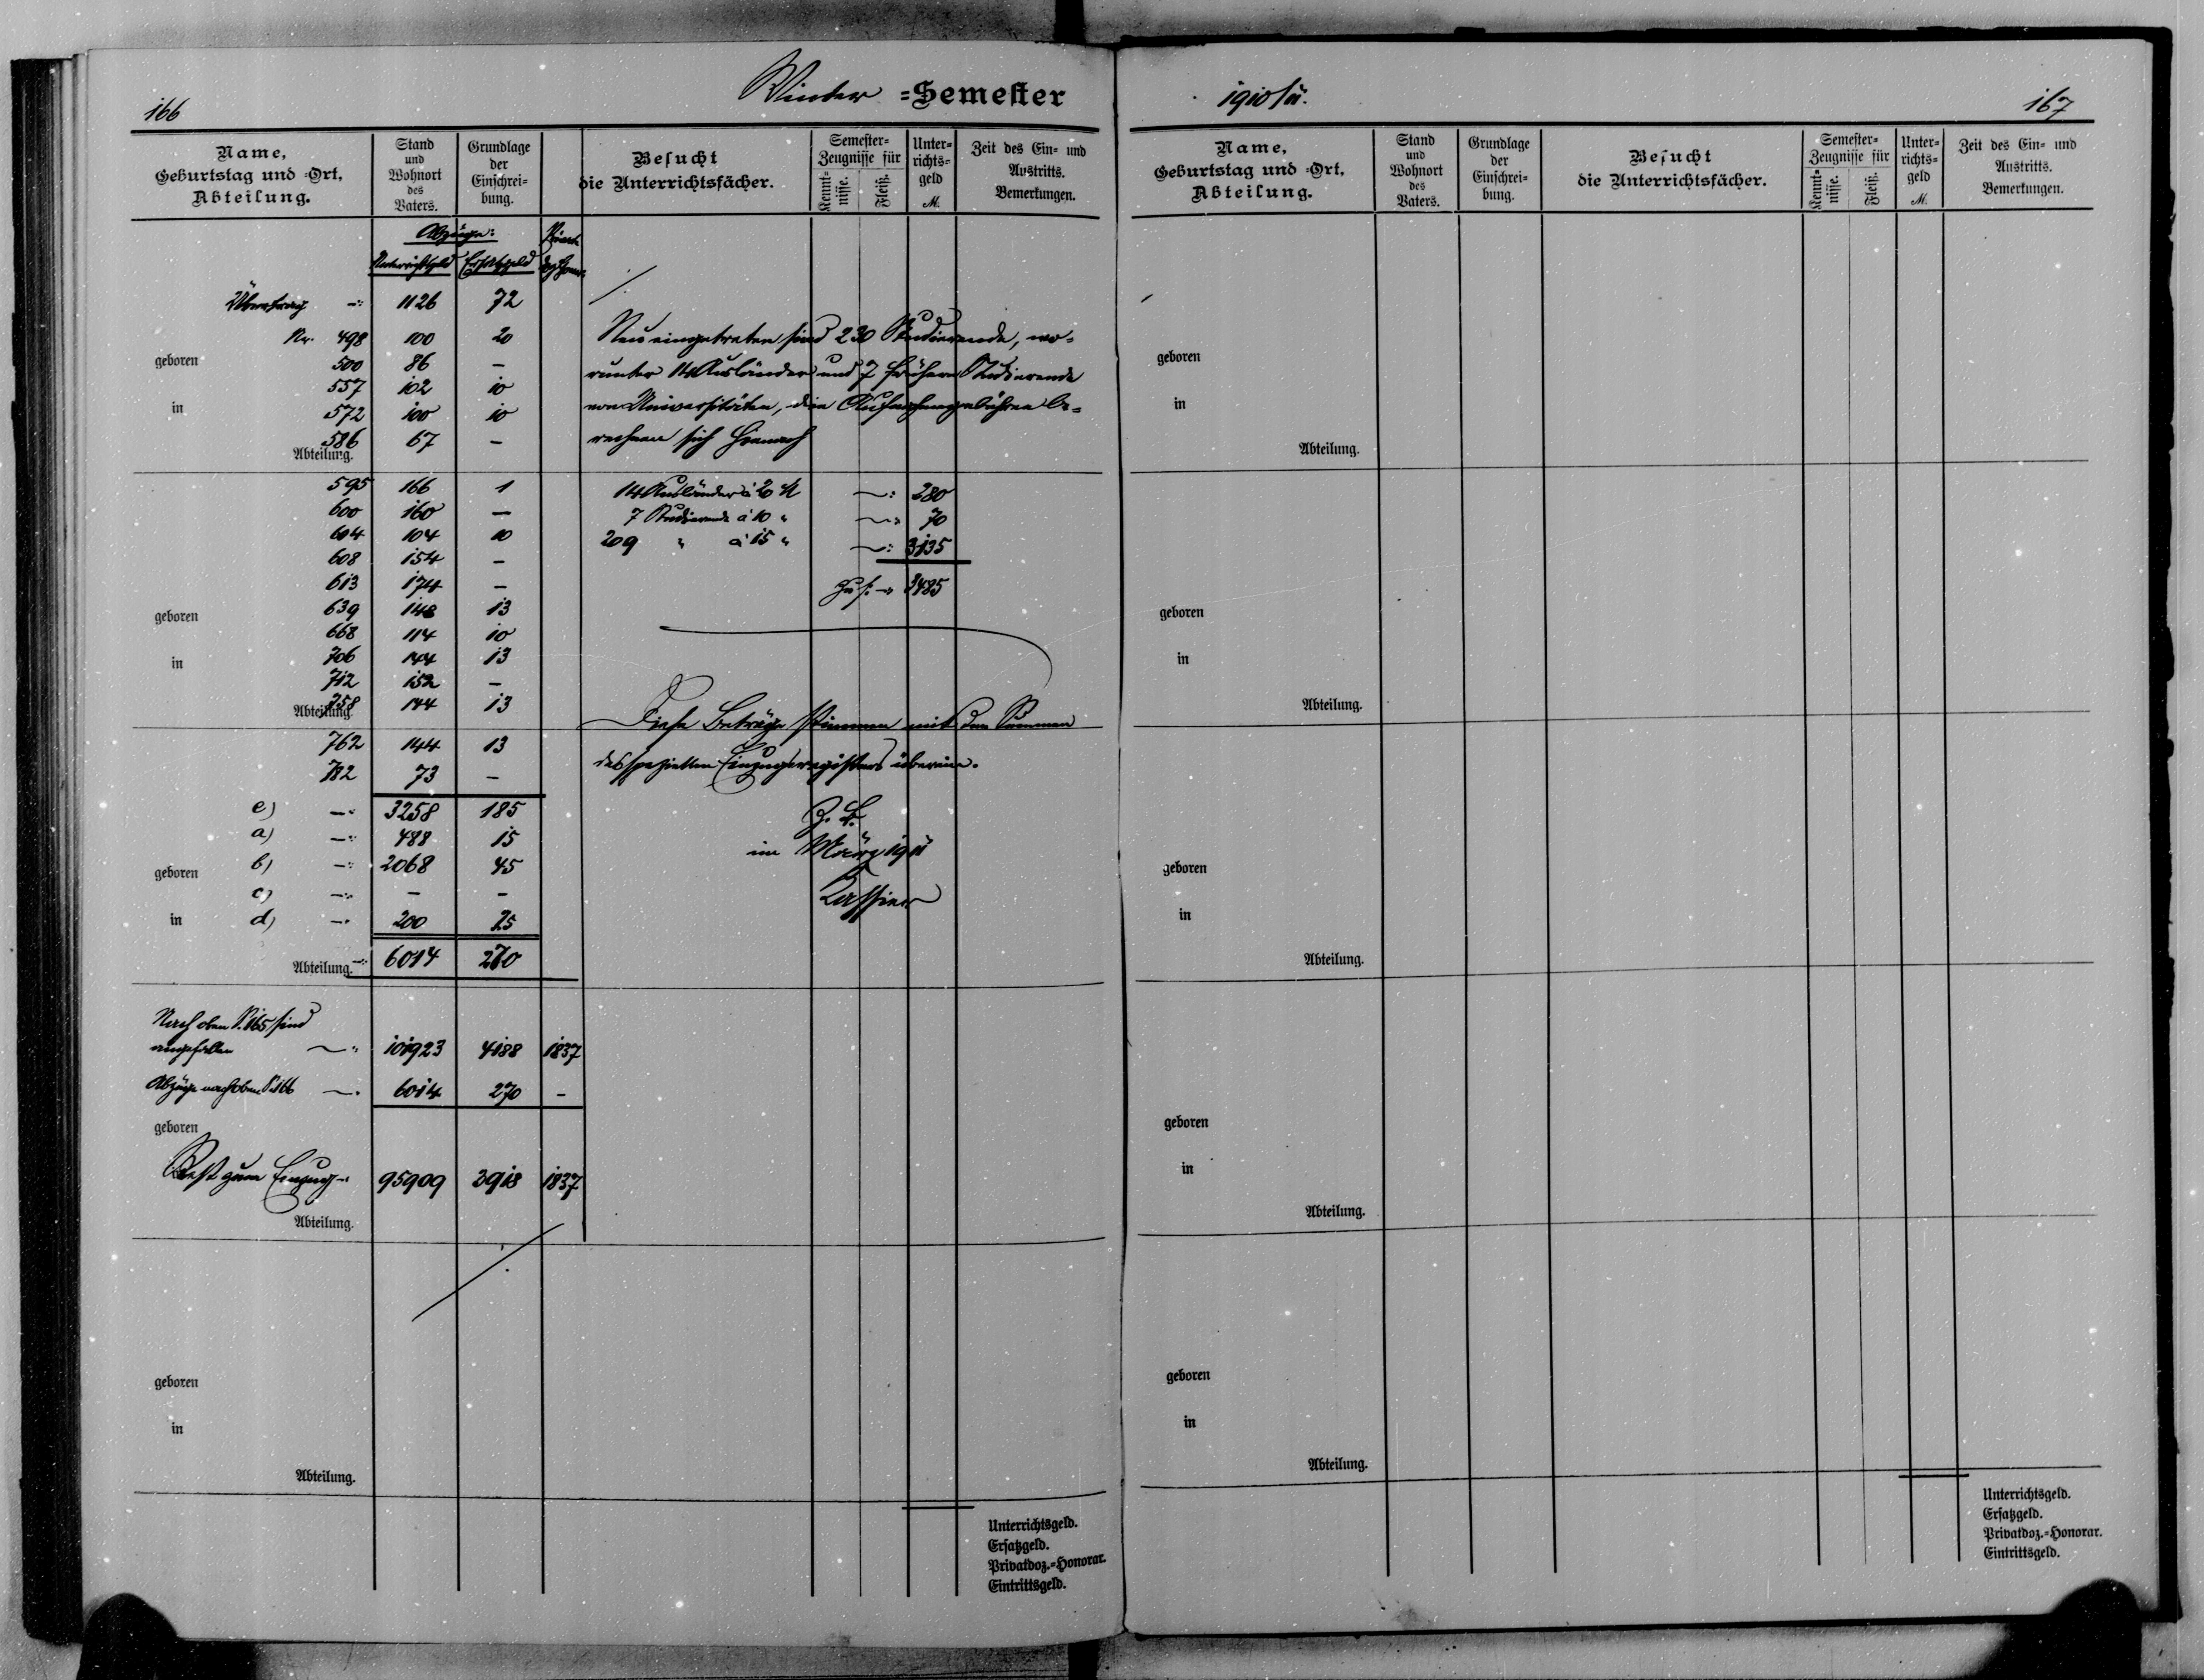 166
Winter =Semester
Name,
Geburtstag und =Ort,
Abteilung.
Stand
und
Wohnort
des
Vaters.
Grundlage
der
Einschrei=
bung.
Besucht
die Unterrichtsfächer.
Semester=
Zeugnisse für
Kennt=
nisse.
Fleiß.
Unter=
richts=
geld
M.
Zeit des Ein= und
Austritts.
Bemerkungen.
Abzüge:
Unterrichtsgeld Ersatzgeld
Übertrag -: 1126 72
Nr. 498 100 20
geboren
500 86 -
557 102 10
in
572 100 10
586 67 -
Abteilung.
Neu eingetreten sind 230 Studierende, wo=
runter 14 Ausländer und 7 frühere Studierende
von Universitäten, die Aufnahmegebühren be=
rechnen sich hienach
595 166 1
600 160 -
604 104 10
608 154 -
613 174 -
639 148 13
geboren
668 114 10
706 144 13
in
712 152 -
758 144 13
Abteilung.
14 Ausländer à 20 M -: 280
7 Studierende à 10 " -: 70
209 " à 15 " -: 3135
Zus. -: 3485
762 144 13
782 73 -
e) -: 3258 185
a) -: 488 15
b) -: 2068 45
geboren
c) -: - -
in
d) -: 200 25
Abteilung. -: 6014 270
Diese Beträge stimmen mit den Summen
des speziellen Einzugsregisters überein.
Z. B.
im März 1911
Kassier
Nach oben S. 165 sind
angefallen -: 101923 4188 1837
Abzüge nach oben S. 166 -: 6014 270 -
geboren
Rest zum Einzug -: 95909 3918 1837
Abteilung.
geboren
in
Abteilung.
Unterrichtsgeld.
Ersatzgeld.
Privatdoz.=Honorar.
Eintrittsgeld.
1910/11.
167
Name,
Geburtstag und =Ort,
Abteilung.
Stand
und
Wohnort
des
Vaters.
Grundlage
der
Einschrei=
bung.
Besucht
die Unterrichtsfächer.
Semester=
Zeugnisse für
Kennt=
nisse.
Fleiß.
Unter=
richts=
geld
M.
Zeit des Ein= und
Austritts.
Bemerkungen.
geboren
in
Abteilung.
geboren
in
Abteilung.
geboren
in
Abteilung.
geboren
in
Abteilung.
geboren
in
Abteilung.
Unterrichtsgeld.
Ersatzgeld.
Privatdoz.=Honorar.
Eintrittsgeld.